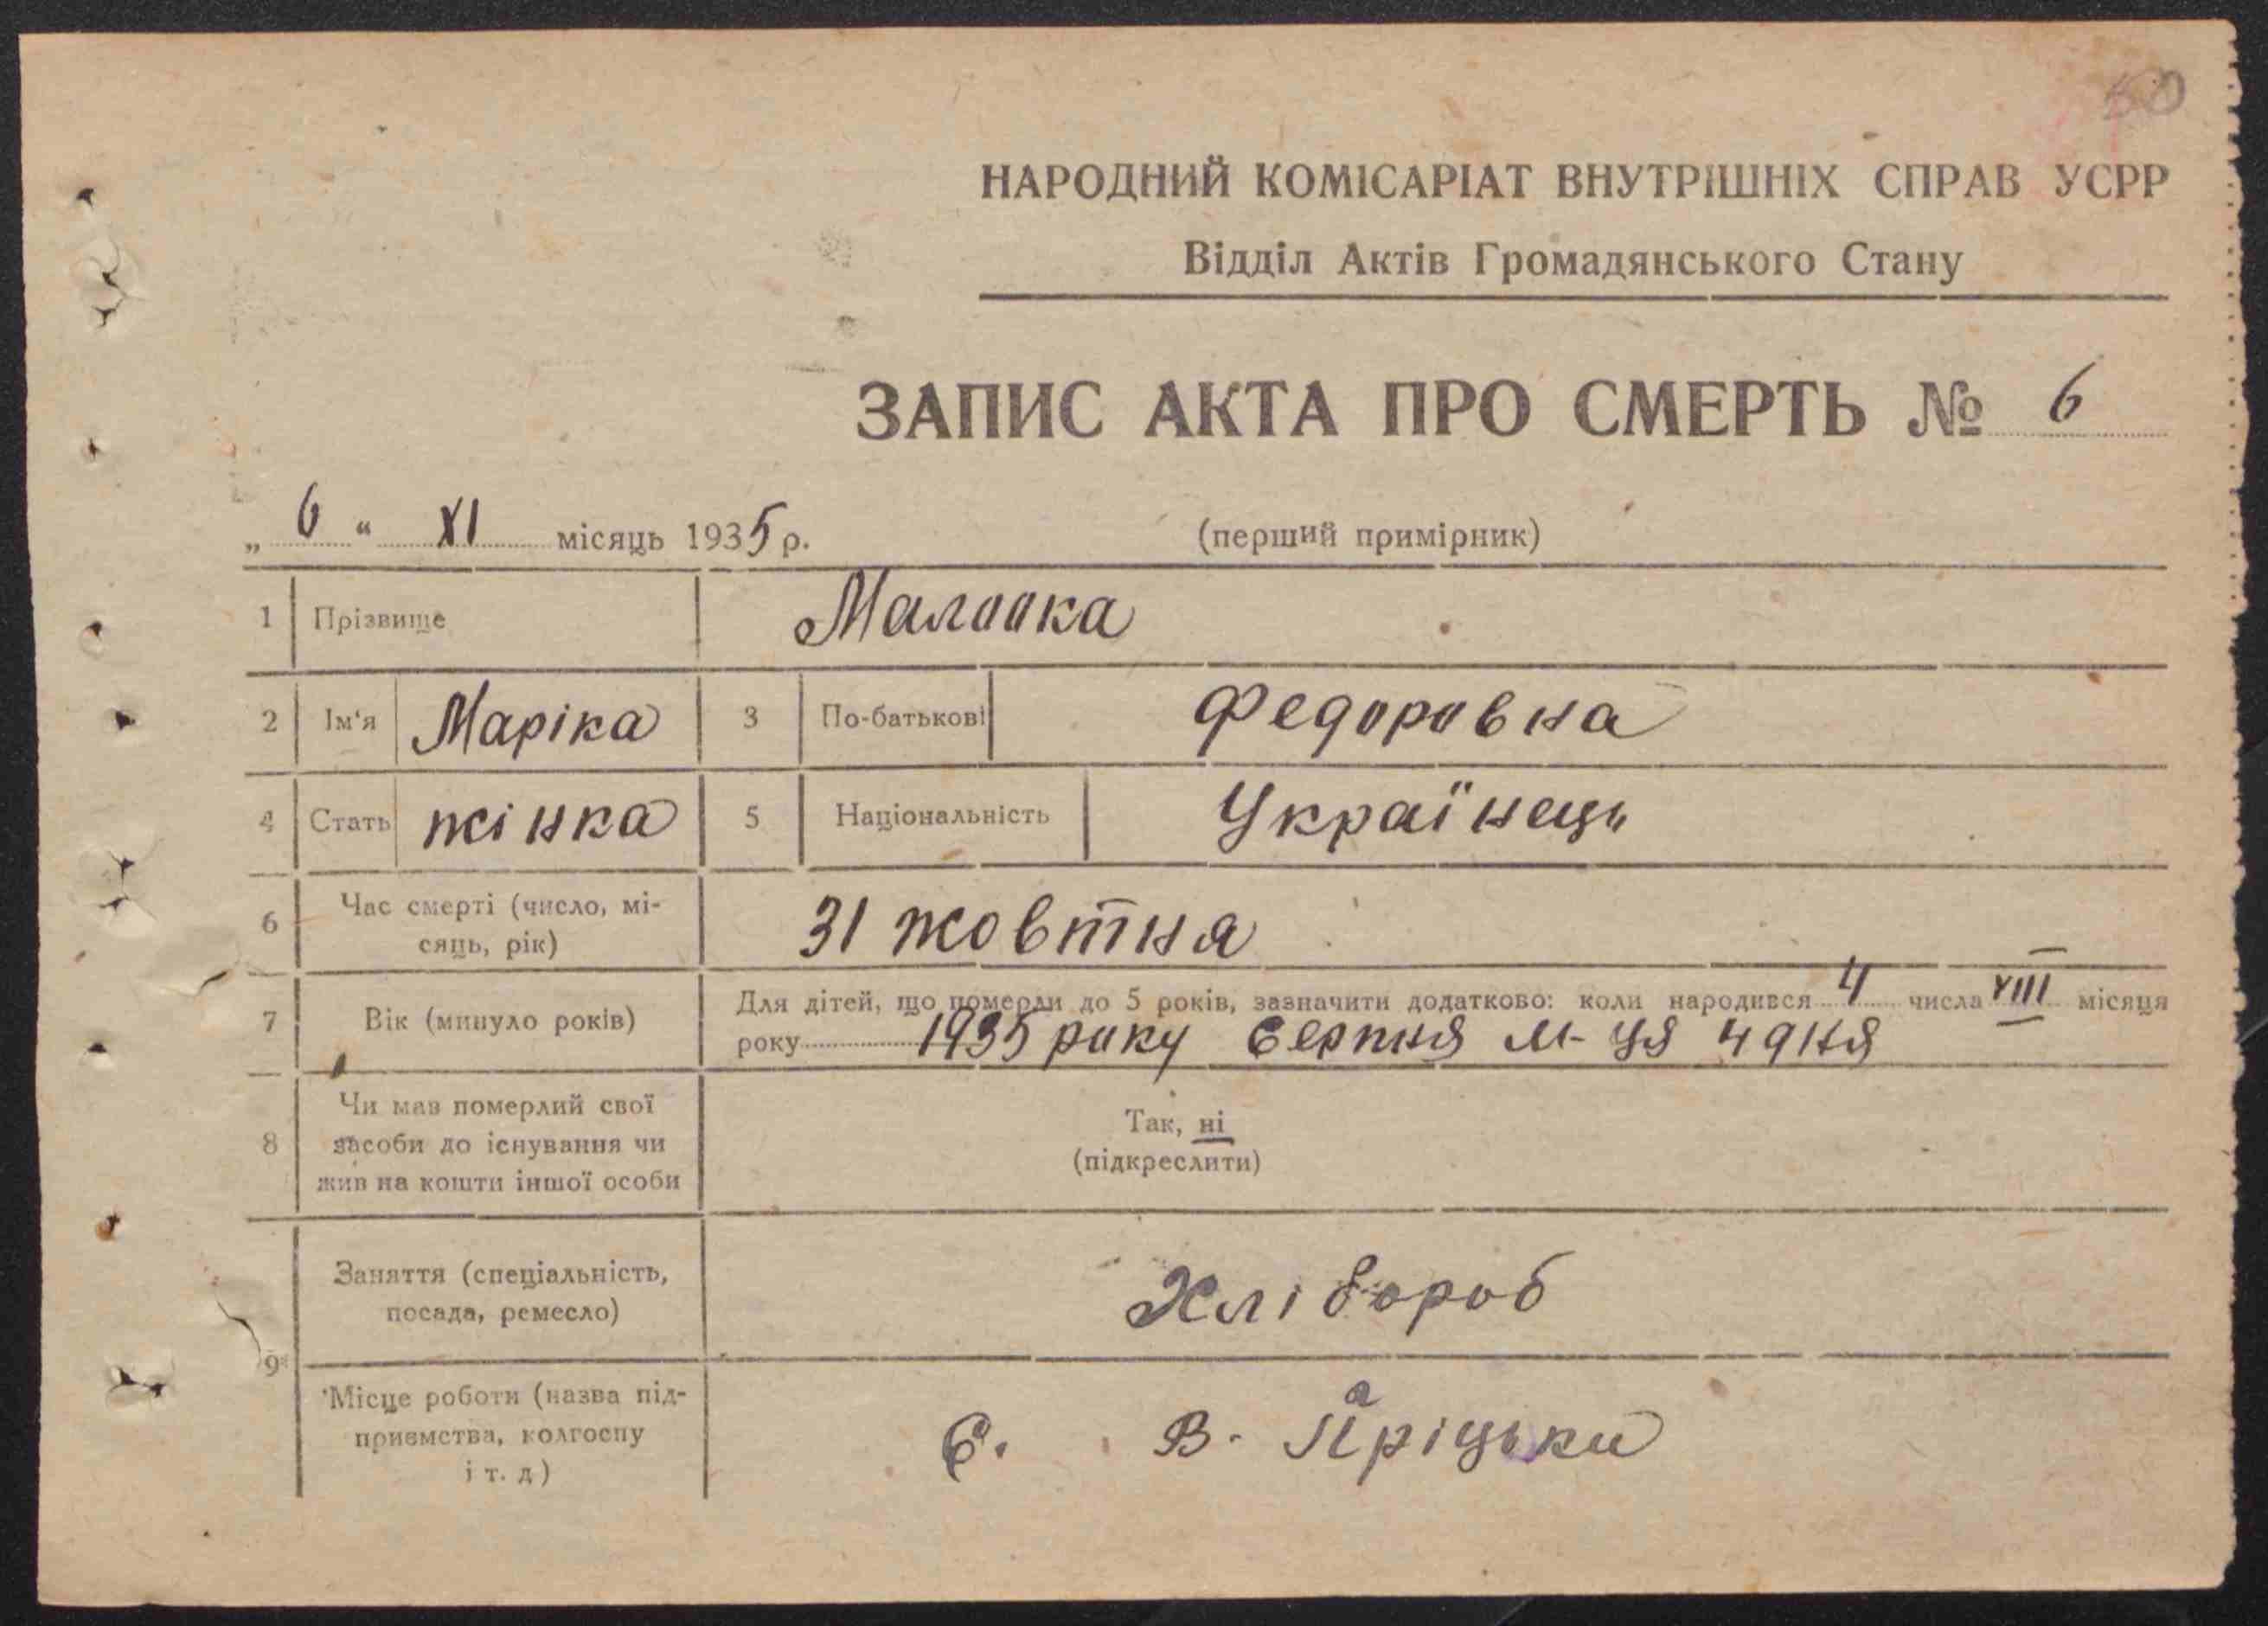 50
НАРОДНИЙ КОМІСАРІАТ ВНУТРІШНІХ СПРАВ УСРР
Відділ Актів Громадянського Стану
ЗАПИС АКТА ПРО СМЕРТЬ № 6
„ 6 “ XI місяць 1935 р. (перший примірник)
1 Прізвище
2 Ім'я Маріка 3 По-батькові Федоровна
4 Стать жінка 5 Національність Українець
6 Час смерті (число, мі-
сяць, рік) 31 жовтня
7 Вік (минуло років) Для дітей, що померли до 5 років, зазначити додатково: коли народився 4 числа VIII місяця
року 1935 року Серпня м-ця 4 дня
8 Чи мав померлий свої
засоби до існування чи
жив на кошти іншої особи
Так, ні
(підкреслити)
9 Заняття (спеціальність,
посада, ремесло) Хлібороб
Місце роботи (назва під-
приємства, колгоспу
і т. д)
С. В.